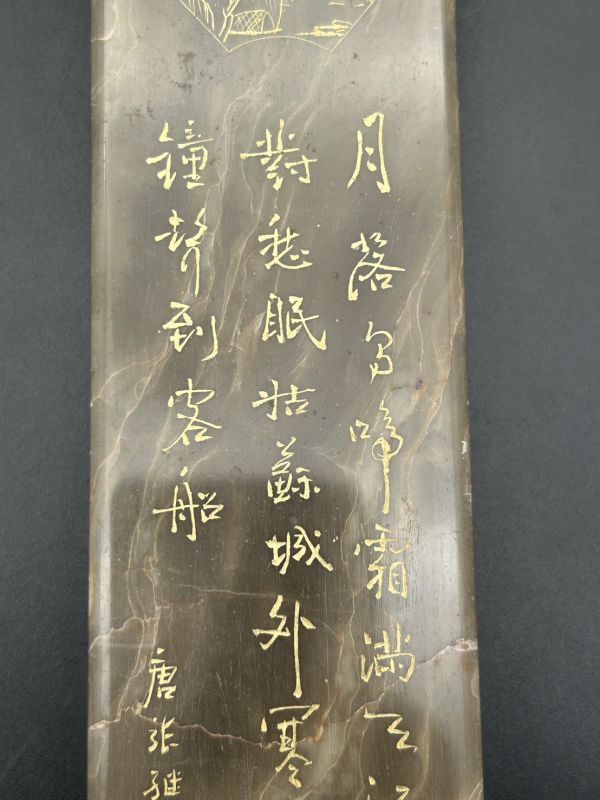 月落烏啼霜滿天
對愁眠姑蘇城外寒
鐘聲到客船
唐張继